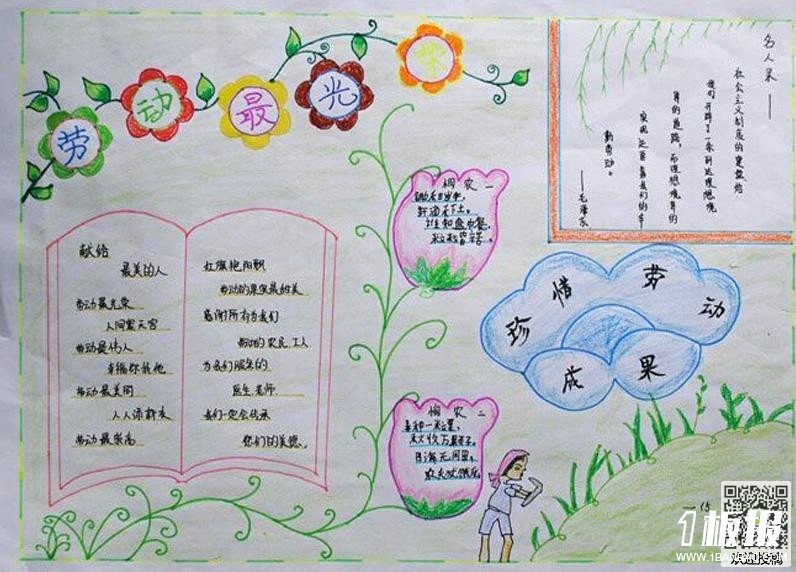 劳动最光荣
名人录——
社会主义制度的建立给
我们开辟了一条到达理想境
界的道路,而理想境界的
实现还要靠我们的辛
勤劳动。
——毛泽东
悯农一
锄禾日当午,
汗滴禾下土。
谁知盘中餐,
粒粒皆辛苦。
献给
最美的人
劳动最光荣
人间驚天宫
劳动最伟人
幸福你我他
劳动最美丽
人人添新衣
劳动最崇高
红旗艳阳飘
劳动的果实最甜美
感谢所有为我们
勤劳的农民工人
为我们服务的
医生老师
我们一定会传承
您们的美德。
珍惜劳动
成果
悯农二
春种一粒粟,
秋收万颗子。
四海无闲田,
农夫犹饿死。
15
1板报
WWW.1BANBAO.COM
欢迎投稿